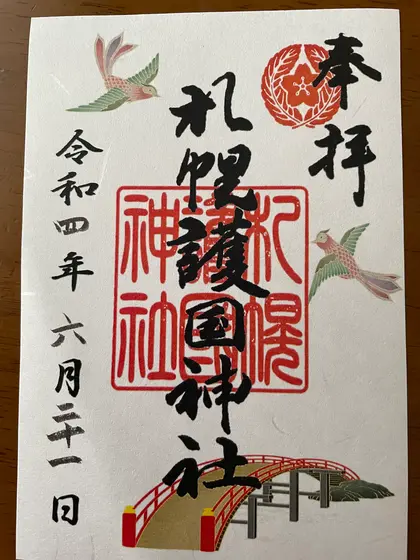 奉拝
札幌護国神社
札幌
護国
神社
令和四年 六月二十一日